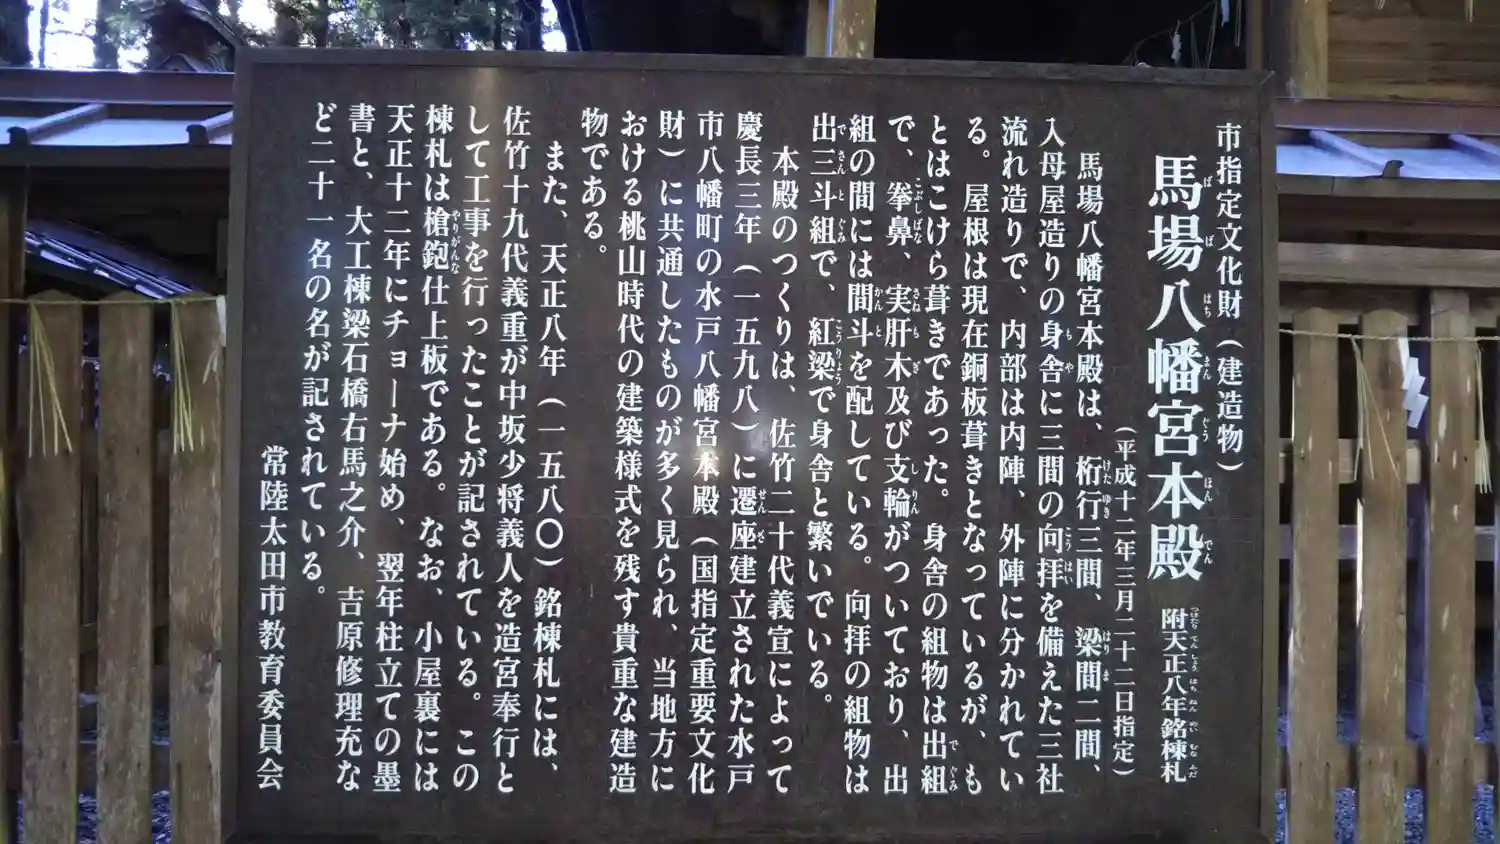 市指定文化財(建造物)
馬場八幡宮本殿 附天正八年銘棟札
(平成十二年三月二十二日指定)
馬場八幡宮本殿は、桁行三間、梁間二間、
入母屋造りの身舎に三間の向拝を備えた三社
流れ造りで、内部は内陣、外陣に分かれてい
る。屋根は現在銅板葺きとなっているが、も
とはこけら葺きであった。身舎の組物は出組
で、拳鼻、実肘木及び支輪がついており、出
組の間には間斗を配している。向拝の組物は
出三斗組で、紅梁で身舎と繁いでいる。
本殿のつくりは、佐竹二十代義宣によって
慶長三年(一五九八)に遷座建立された水戸
市八幡町の水戸八幡宮本殿(国指定重要文化
財)に共通したものが多く見られ、当地方に
おける桃山時代の建築様式を残す貴重な建造
物である。
また、天正八年(一五八〇)銘棟札には、
佐竹十九代義重が中坂少将義人を造宮奉行と
して工事を行ったことが記されている。この
棟札は槍鉋仕上板である。なお、小屋裏には
天正十二年にチョーナ始め、翌年柱立ての墨
書と、大工棟梁石橋右馬之介、吉原修理充な
ど二十一名の名が記されている。
常陸太田市教育委員会